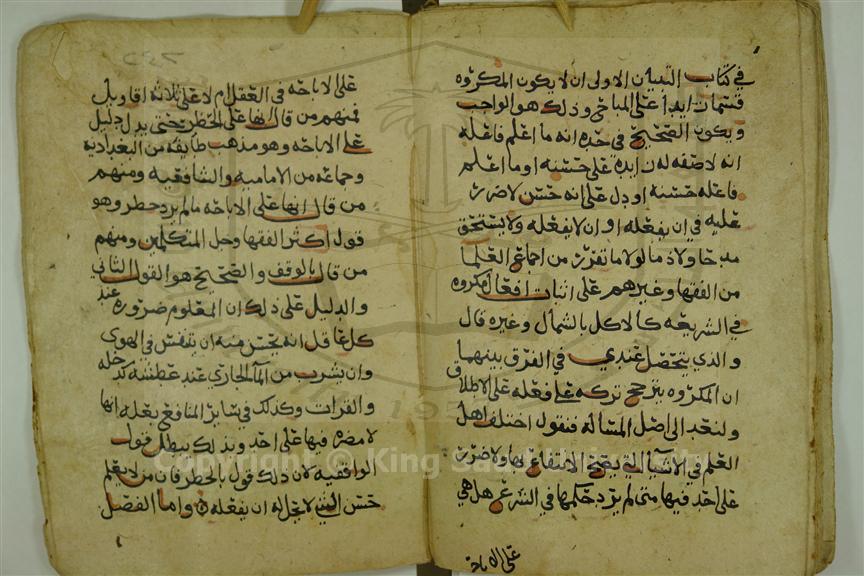 في كتاب التبيان الاولى ان لا يكون المكروه
قسمان ابدا على المباحى وذلك هو الواجب
ويكون الصحيح في حده انه ما اعلم فاعله
انه لا صفه له زايده على حسنه او ما اعلم
فاعله حسنه او دل على انه حسن لا ضرر
عليه في ان يفعله او ان لا يفعله ولا يستحق
مدحا ولا ذما ولا ما تقرر من اجماع العلما
من الفقها وغيرهم على اثبات افعال مكروه
في الشريعه كالاكل بالشمال وغيره قال
والذي يتحصل عندي في الفرق بينهما
ان المكروه يترجح تركه على فعله على الاطلاق
ولنعد الى اصل المساله فنقول اختلف اهل
العلم في الاشيا التي يصح الانتفاع بها ولا ضرر
على احد فيها متى لم يرد حكمها في الشرع هل هي
على الاباحة
على الاباحه في العقل ام لا على ثلاثه اقاويل
فمنهم من قال انها على الحظر حتى يدل دليل
على الاباحه وهو مذهب طايفه من البغداديه
وجماعه من الاماميه والشافعيه ومنهم
من قال انها على الاباحه ما لم يرد حظر وهو
قول اكثر الفقها وجل المتكلمين ومنهم
من قال بالوقف والصحيح هو القول الثاني
والدليل على ذلك ان المعلوم ضروره عند
كل عاقل انه يحسن منه ان يتنفس في الهوى
وان يشرب من المآ الجاري عند عطشه كدجله
والفرات وكذلك في ساير المنافع بعله انها
لا مضره فيها على احد وبذلك يبطل قول
الواقفيه لان ذلك قول بالحظر فان من لا يعلم
حسن الشي لا يحل له ان يفعله واما الفصل
Copyright © King Saud University
195